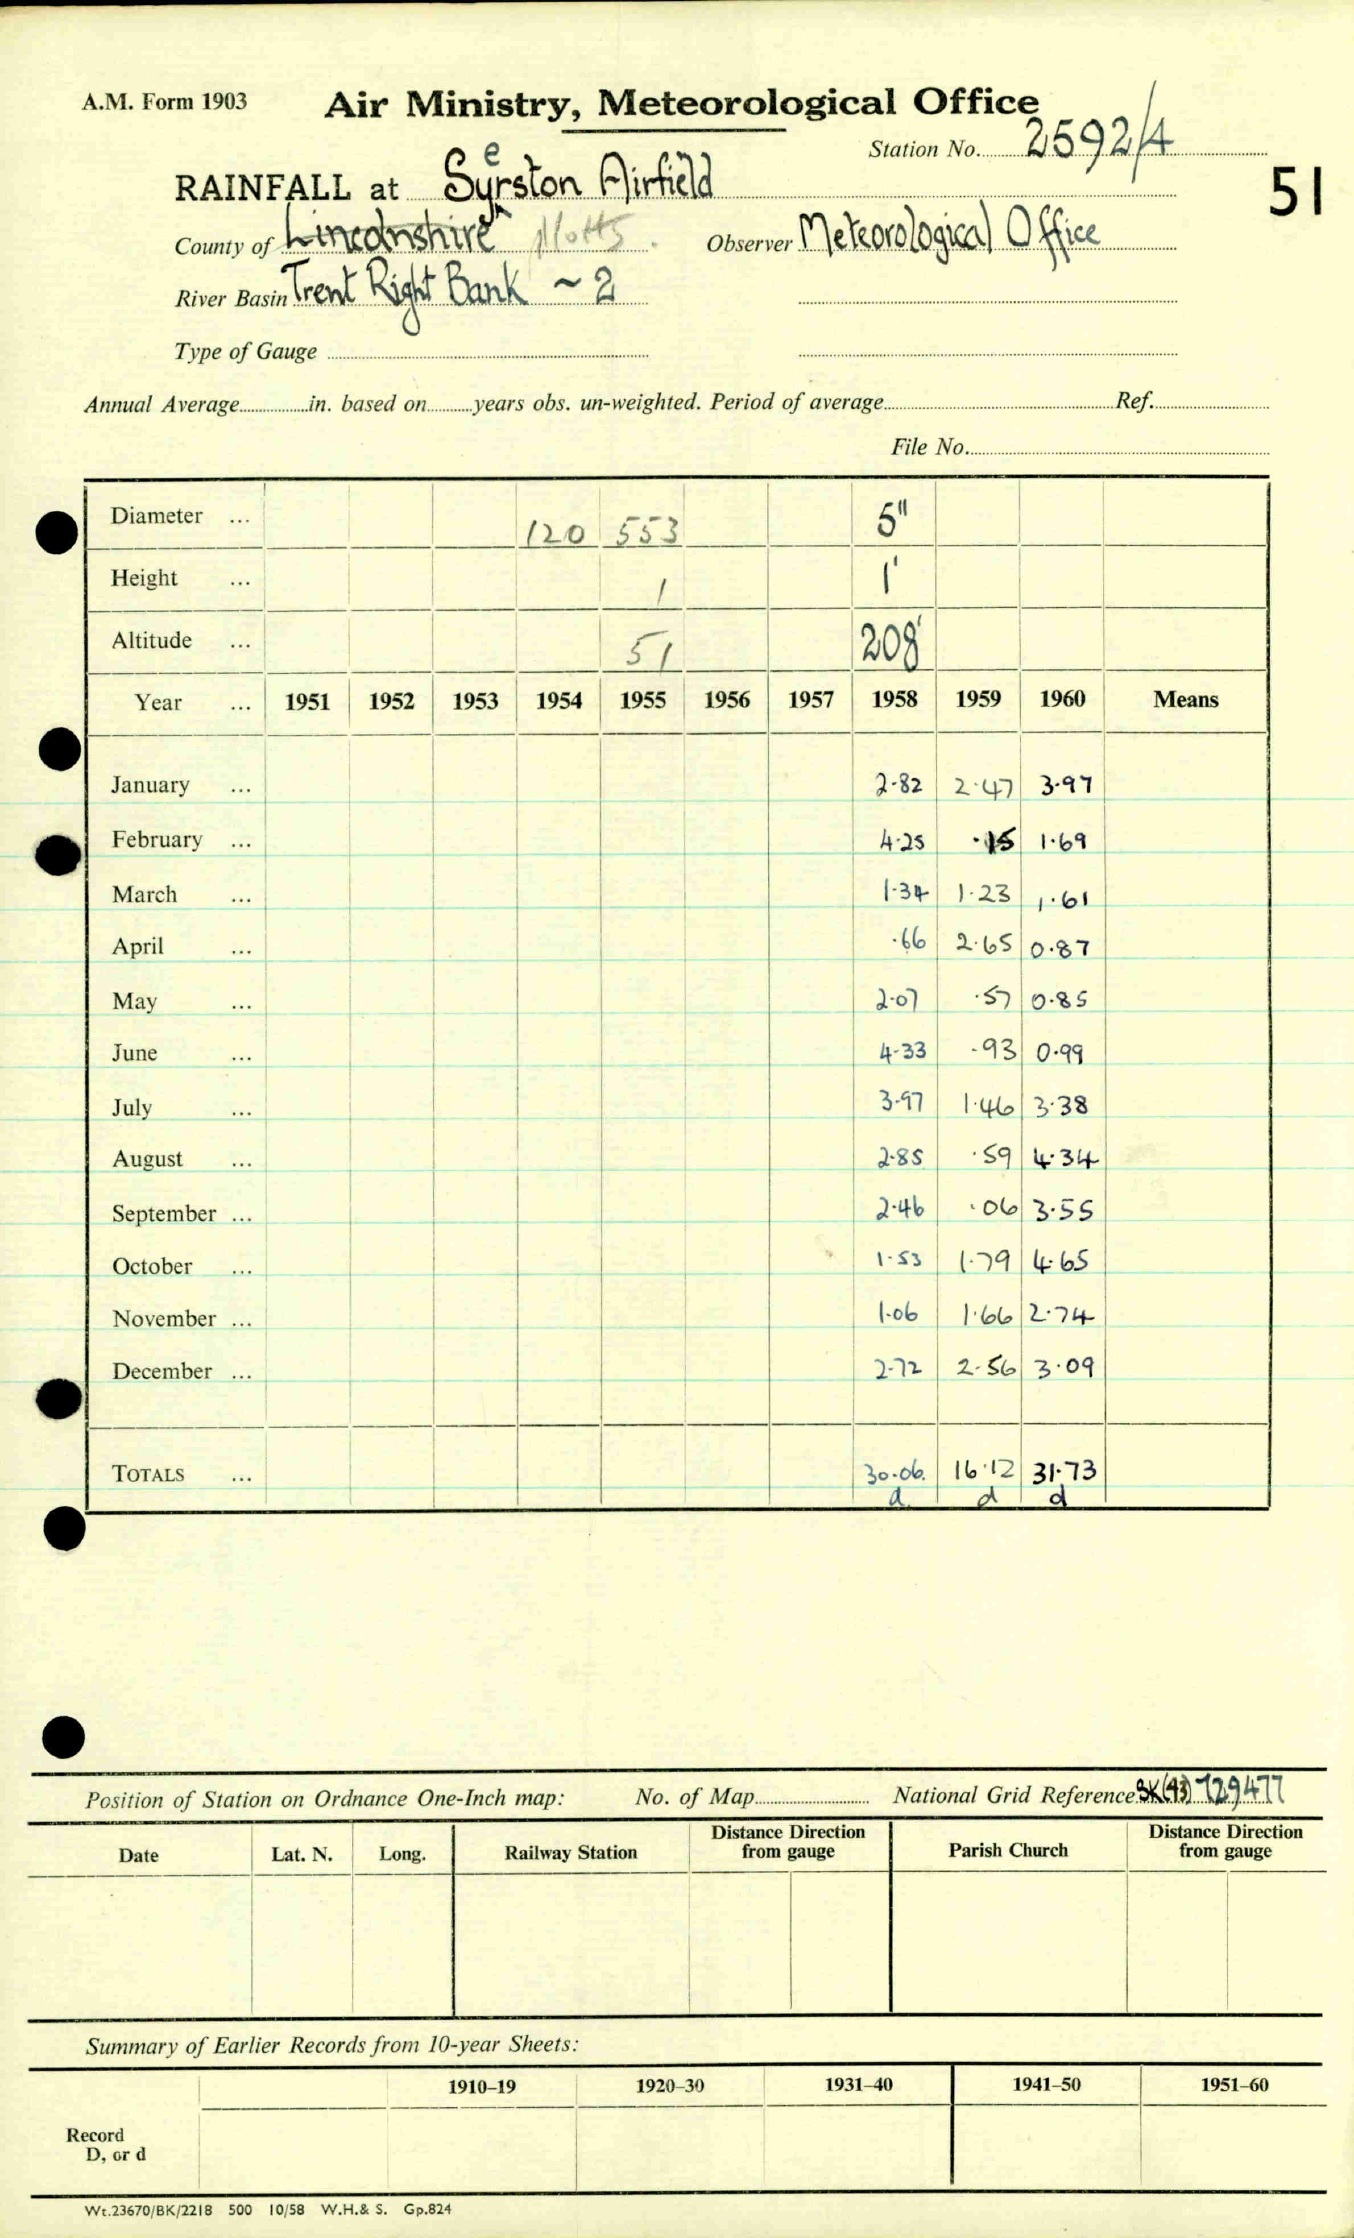 A.M. Form 1903 Air Ministry, Meteorological Office
Station No. 2592/4
51
RAINFALL at Syerston Airfield
County of Lincolnshire Notts. Observer Meteorological Office
River Basin Trent Right Bank ~ 2
Type of Gauge
Annual Average in. based on years obs. un-weighted. Period of average Ref.
File No.
Diameter ... 120 553 5"
Height ... 1 1'
Altitude ... 51 208'
Year ... 1951 1952 1953 1954 1955 1956 1957 1958 1959 1960 Means
January ... 2·82 2·47 3·97
February ... 4·25 ·15 1·69
March ... 1·34 1·23 1·61
April ... ·66 2·65 0·87
May ... 2·07 ·57 0·85
June ... 4·33 ·93 0·99
July ... 3·97 1·46 3·38
August ... 2·85 ·59 4·34
September ... 2·46 ·06 3·55
October ... 1·53 1·79 4·65
November ... 1·06 1·66 2·74
December ... 2·72 2·56 3·09
TOTALS ... 30·06. 16·12 31·73
d d d
Position of Station on Ordnance One-Inch map: No. of Map National Grid Reference SK(43) 729477
Date Lat. N. Long. Railway Station Distance Direction from gauge Parish Church Distance Direction from gauge
Summary of Earlier Records from 10-year Sheets:
1910–19 1920–30 1931–40 1941–50 1951–60
Record
D, or d
Wt.23670/BK/2218 500 10/58 W.H.& S. Gp.824